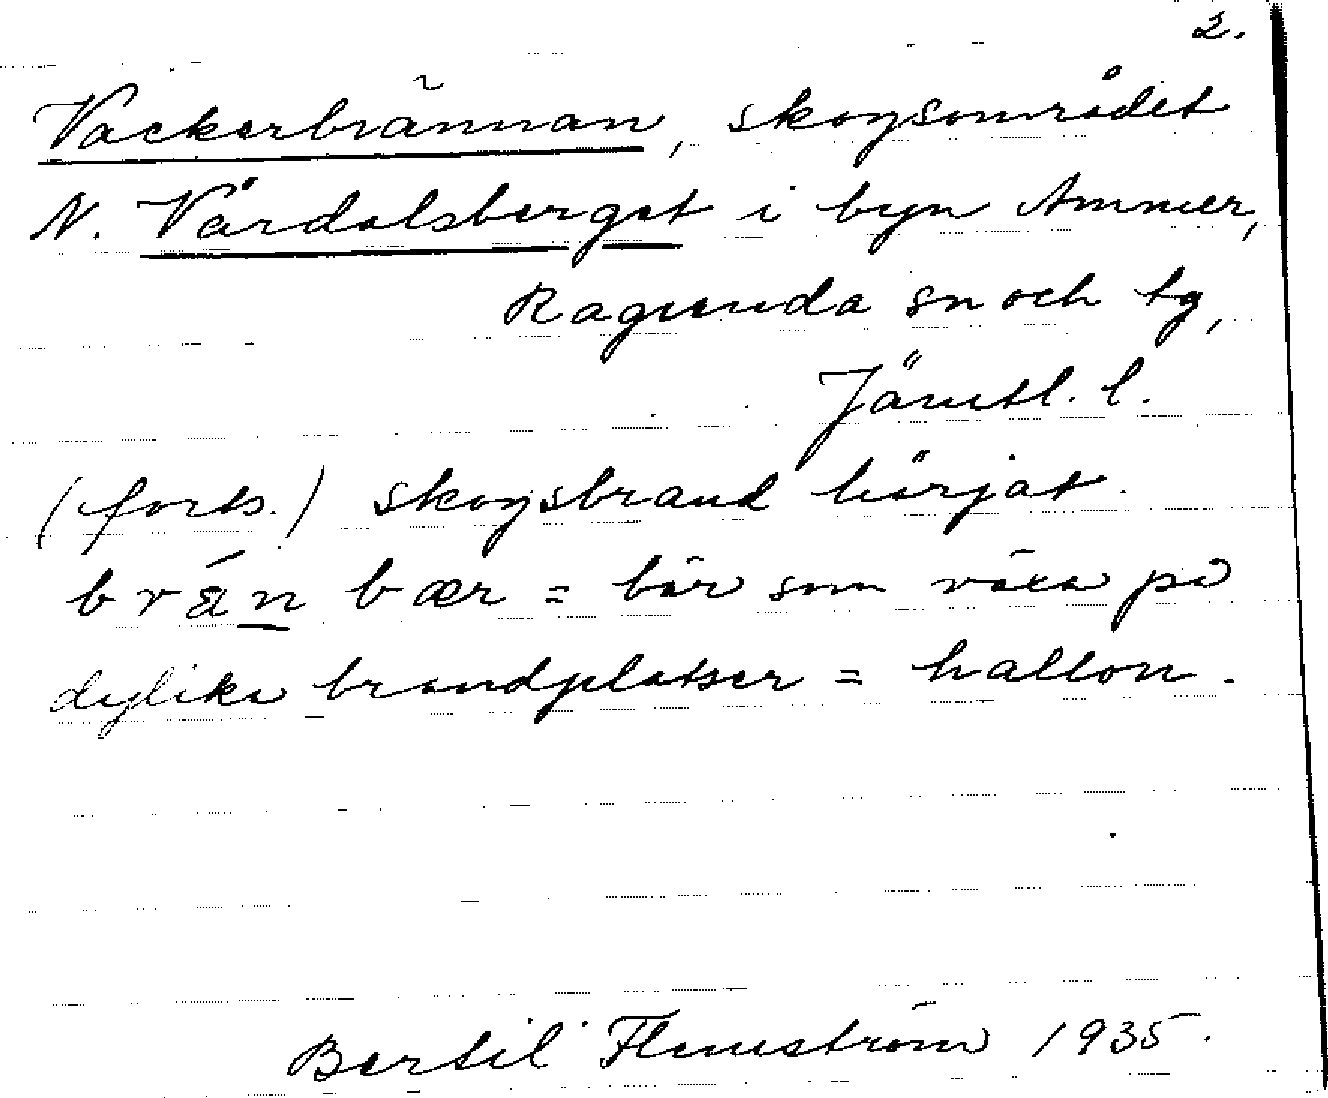 2.
Vackerbrännan, skogsområdet
N. Vårdalsberget i byn Ammer,
Ragunda sn och tg,
Jämtl. l.
(forts.) skogsbrand börjat.
brän bær = bär som växa på
dylika brandplatser = hallon.
Bertil Flemström 1935.